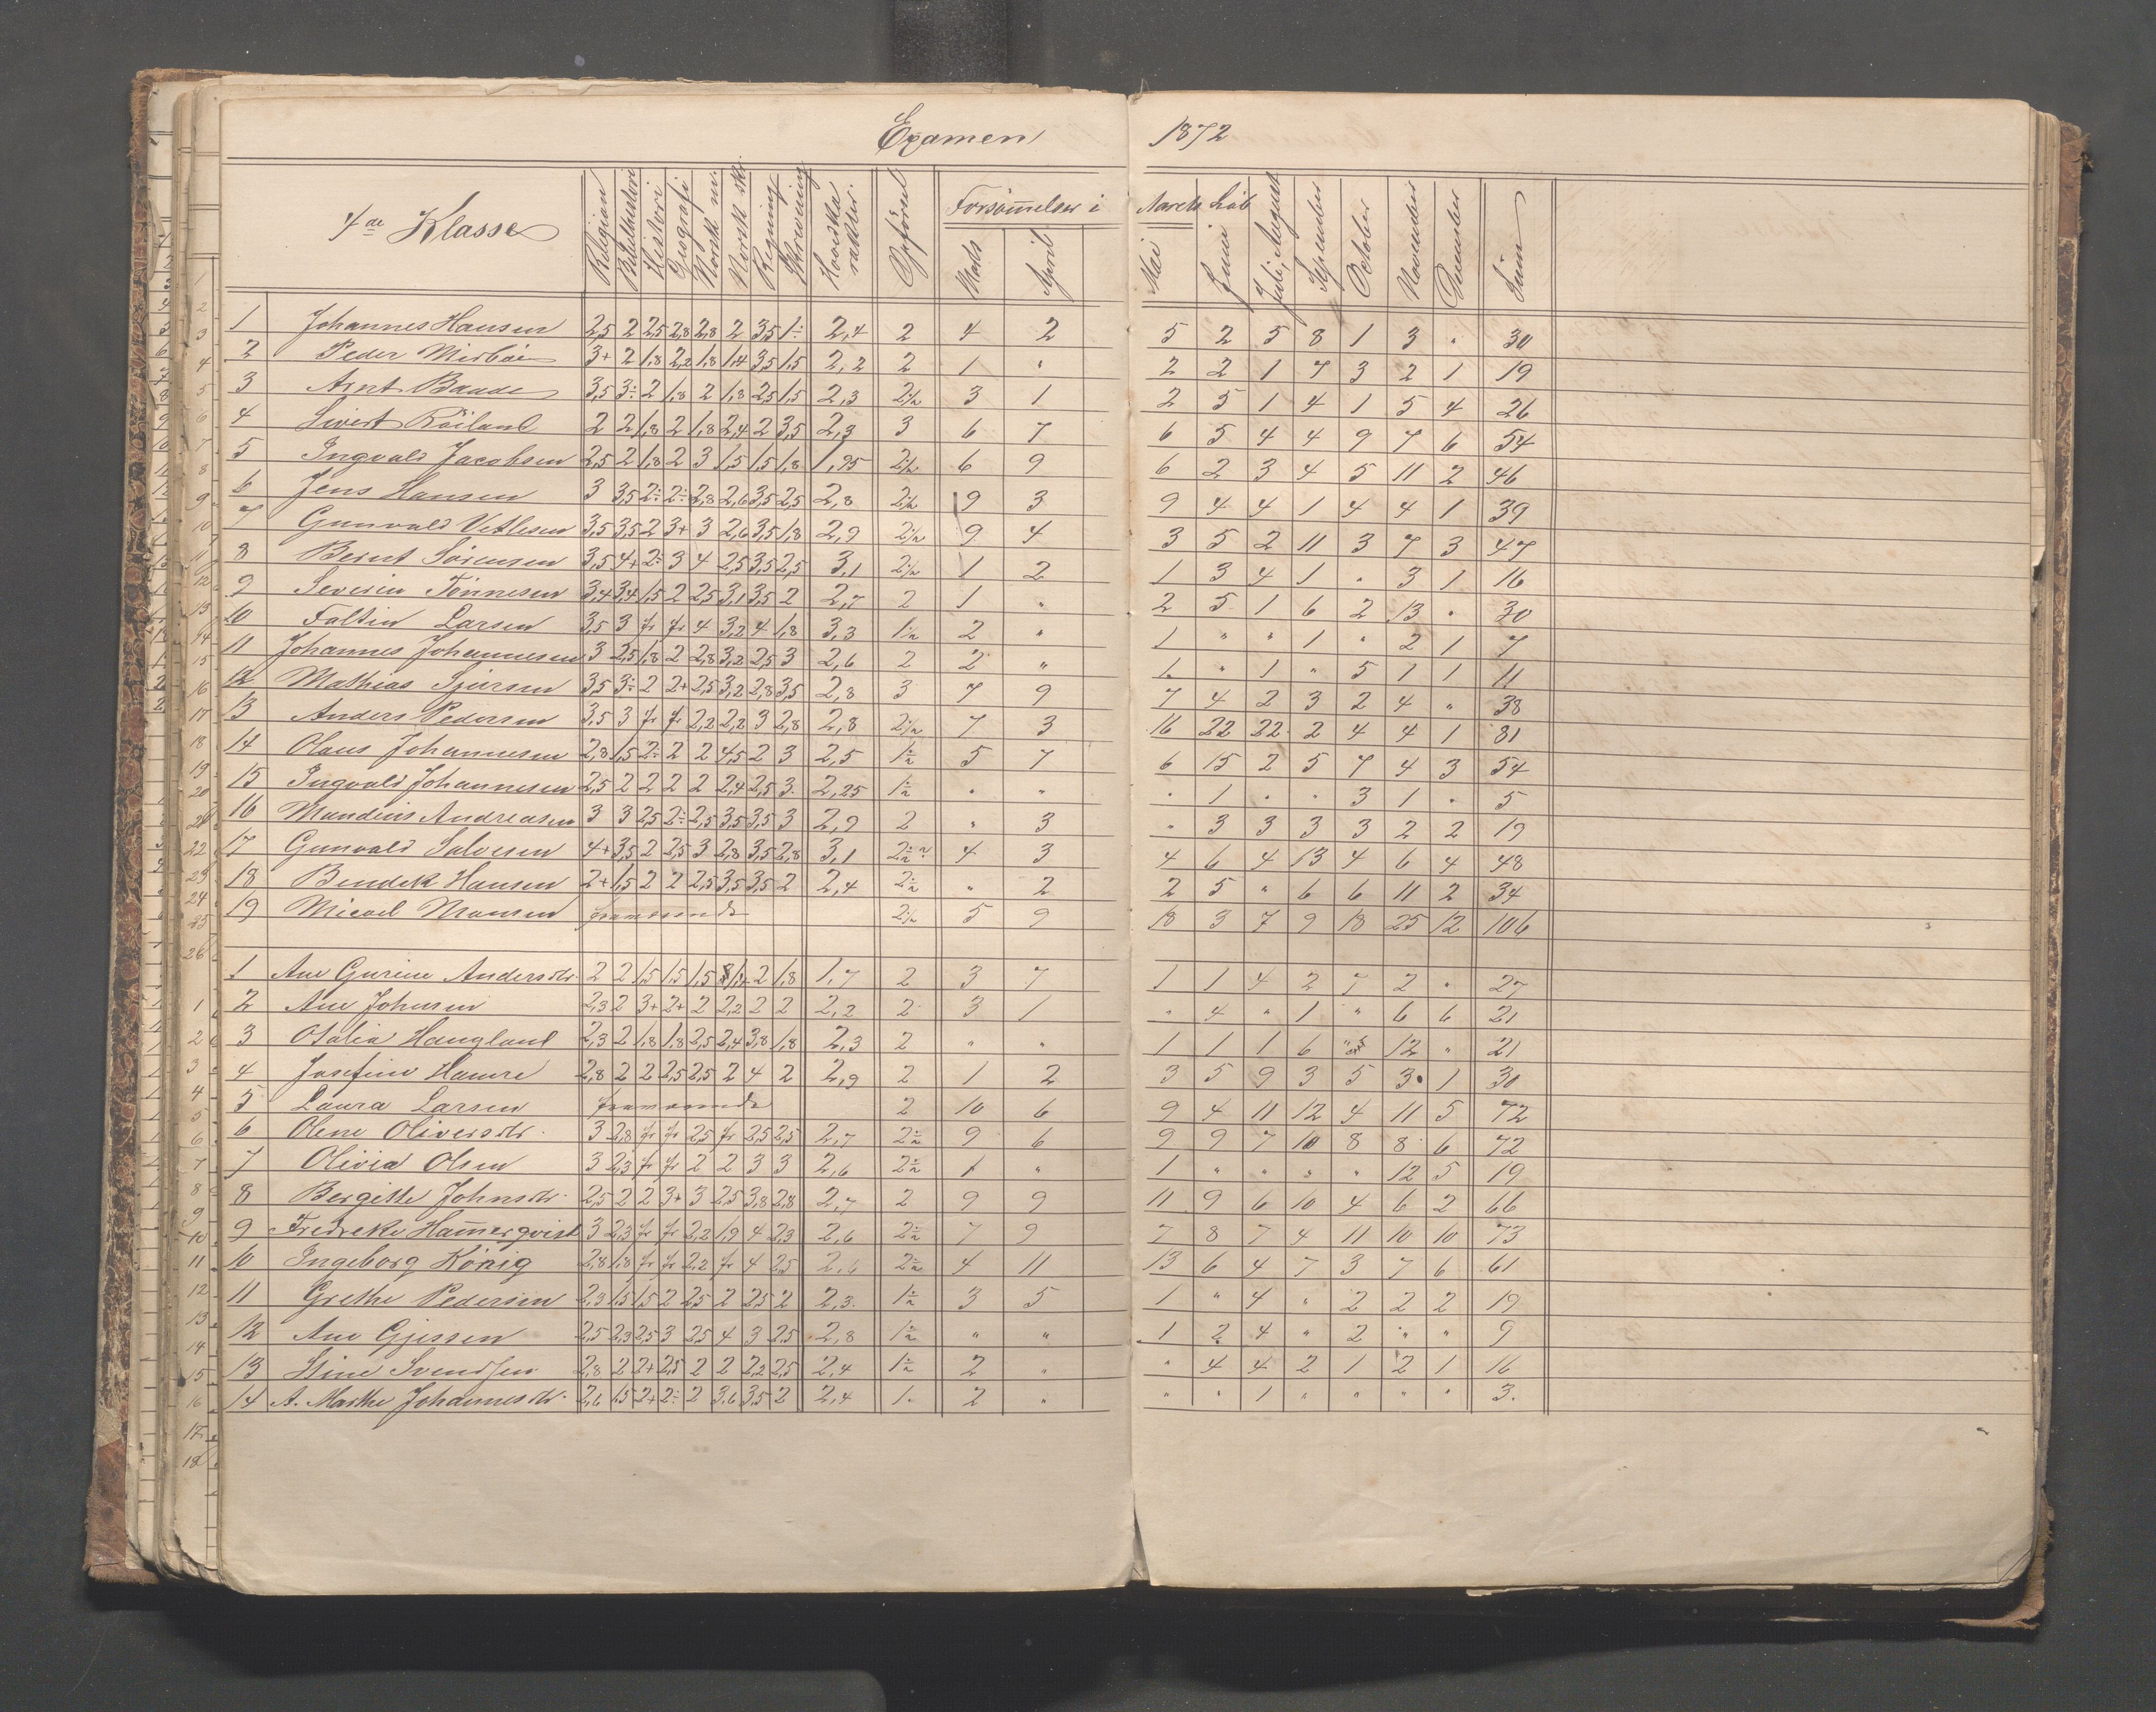 Examen 1872
4de Klasse Religion Bibelhistori Histori Geografi Norsk m. Norsk sk. Regning Skrivning Hovedka rakter. Opförsel Forsömmelser i Aarets Löb
Marts April Mai Juni Juli, August September October November December Sum
1 Johannes Hansen 2,5 2 2,5 2,8 2,8 2 3,5 1÷ 2,4 2 4 2 5 2 5 8 1 3 " 30
2 Peder 3+ 2 1,8 2,2 1,8 1,4 3,5 1,5 2,2 2 1 " 2 2 1 7 3 2 1 19
3 Arnt Baade 3,5 3÷ 2 1,8 2 1,8 2,5 1,5 2,3 2½ 3 1 2 5 1 4 1 5 4 26
4 Sivert Röiland 2 2 1,8 2 1,8 2,4 2 3,5 2,3 3 6 7 6 5 4 4 9 7 6 54
5 Ingvald Jacobsen 2,5 2 1,8 2 3 1,5 1,5 1,8 1,95 2½ 6 9 6 2 3 4 5 11 2 46
6 Jens Hansen 3 3,5 2÷ 2÷ 2,8 2,6 3,5 2,5 2,8 2½ 9 3 9 4 4 1 4 4 1 39
7 Gunvald Vetlesen 3,5 3,5 2 3+ 3 2,6 3,5 1,8 2,9 2½ 9 4 3 5 2 11 3 7 3 47
8 Bernt Sörensen 3,5 4+ 2÷ 3 4 2,5 3,5 2,5 3,1 2½ 1 2 1 3 4 1 " 3 1 16
9 Severin Tönnesen 3,4 3,4 1,5 2 2,5 3,1 3,5 2 2,7 2 1 " 2 5 1 6 2 13 " 30
10 Faltin Larsen 3,5 3 fr fr 4 3,2 4 1,8 3,3 1½ 2 " 1 " " 1 " 2 1 7
11 Johannes Johannesen 3 2,5 1,8 2 2,8 3,2 2,5 3 2,6 2 2 " 1 " 1 " 5 1 1 11
12 Mathias Sjursen 3,5 3÷ 2 2+ 2,5 3,2 2,8 3,5 2,8 3 7 9 7 4 2 3 2 4 " 38
13 Anders Pedersen 3,5 3 fr fr 2,2 2,2 3 2,8 2,8 2½ 7 3 16 22 22 2 4 4 1 81
14 Olaus Johannesen 2,8 1,5 2÷ 2 2 4,5 2 3 2,5 1½ 5 7 6 15 2 5 7 4 3 54
15 Ingvald Johannesen 2,5 2 2 2 2 2,4 2,5 3 2,25 1½ " " " 1 " " 3 1 " 5
16 Mandius Andreasen 3 3 2,5 2÷ 2,5 3,5 3,5 3 2,9 2 " 3 " 3 3 3 3 2 2 19
17 Gunvald Salvesen 4+ 3,5 2 2,5 3 2,8 3,5 2,8 3,1 2½ 4 3 4 6 4 13 4 6 4 48
18 Bendik Hansen 2+ 1,5 2 2 2,5 3,5 3,5 2 2,4 2½ " 2 2 5 " 6 6 11 2 34
19 Micael fraværende 2½ 5 9 18 3 7 9 18 25 12 106
1 Ane Gurine Andersdtr. 2 2 1,5 1,5 1,5 2 1,8 1,7 2 3 7 1 1 4 2 7 2 " 27
2 Ane Johnsen 2,3 2 3+ 2+ 2 2,2 2 2 2,2 2 3 1 " 4 " 1 " 6 6 21
3 Otalia Haugland 2,3 2 1,8 1,8 2,5 2,4 3,8 1,8 2,3 2 " " 1 1 1 6 " 12 " 21
4 Josefine Hamre 2,8 2 2 2,5 2,5 2 4 2 2,9 2 1 2 3 5 9 3 5 3 1 30
5 Laura Larsen fraværende 2 10 6 9 4 11 12 4 11 5 72
6 Olene Oliversdtr. 3 2,8 fr fr 2,5 fr 2,5 2,5 2,7 2½ 9 6 9 9 7 10 8 8 6 72
7 Olivia Olsen 3 2,3 fr fr 2 2 3 3 2,6 2½ 1 " 1 " " " " 12 5 19
8 Bergithe Johnsdtr. 2,5 2 2 3+ 3 2,5 3,8 2,8 2,7 2 9 9 11 9 6 10 4 6 2 66
9 Fredrekke Hammerqvist 3 2,3 fr fr 2,2 1,9 4 2,3 2,6 2½ 7 9 7 8 7 4 11 10 10 73
10 Ingeborg König 2,8 1,8 fr fr 2,2 fr 4 2,5 2,6 2½ 4 11 13 6 4 7 3 7 6 61
11 Grethe Pedersen 2,3 1,5 1,5 2 2,5 2 2,5 2 2,3 1½ 3 5 1 " 4 " 2 2 2 19
12 Ane Gjessen 2,5 2,3 2,5 3 2,5 4 3 2,5 2,8 1½ " " 1 2 4 " 2 " " 9
13 Stine Svendsen 2,8 2 2+ 2,5 2 2 2,2 2,5 2,4 1½ 2 " " 4 4 2 1 2 1 16
14 A. Marthe Johannesdtr. 2,6 1,5 2+ 2÷ 2 3,6 3,5 2 2,4 1 2 " " " 1 " " " " 3